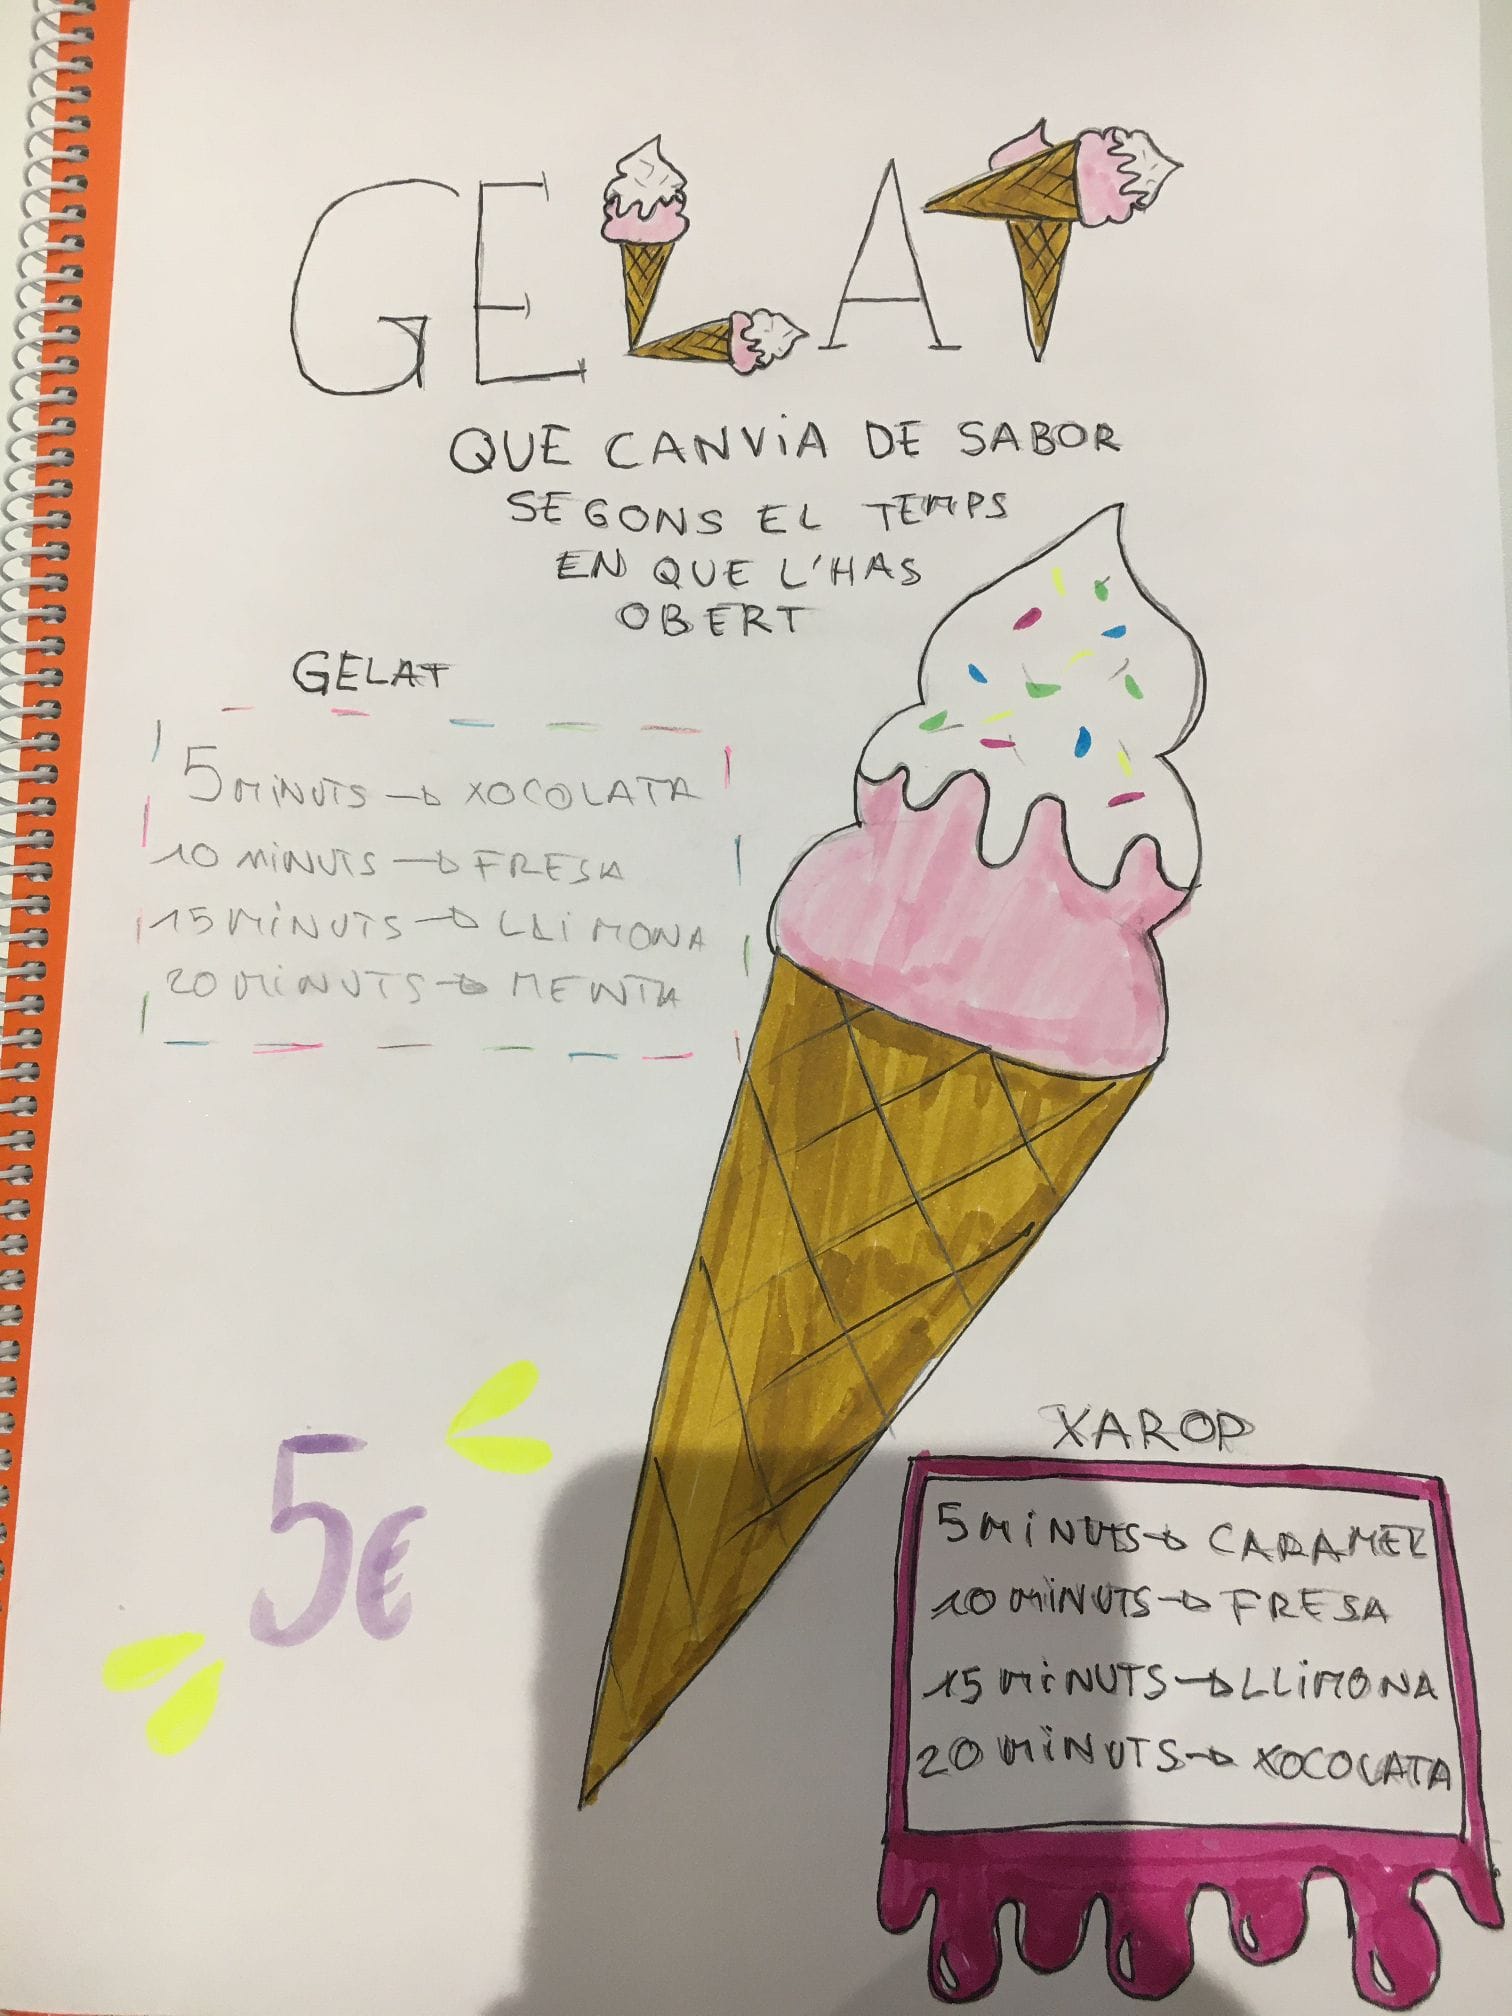 GELAT
QUE CANViA DE SABOR
SEGONS EL TEMPS
EN QUE L'HAS
OBERT
GELAT
5 MiNUTS → XOCOLATA
10 MiNUTS → FRESA
15 MiNUTS → LLiMONA
20 MiNUTS → MENTA
5€
XAROP
5 MiNUTS → CARAMEL
10 MiNUTS → FRESA
15 MiNUTS → LLiMONA
20 MiNUTS → XOCOLATA